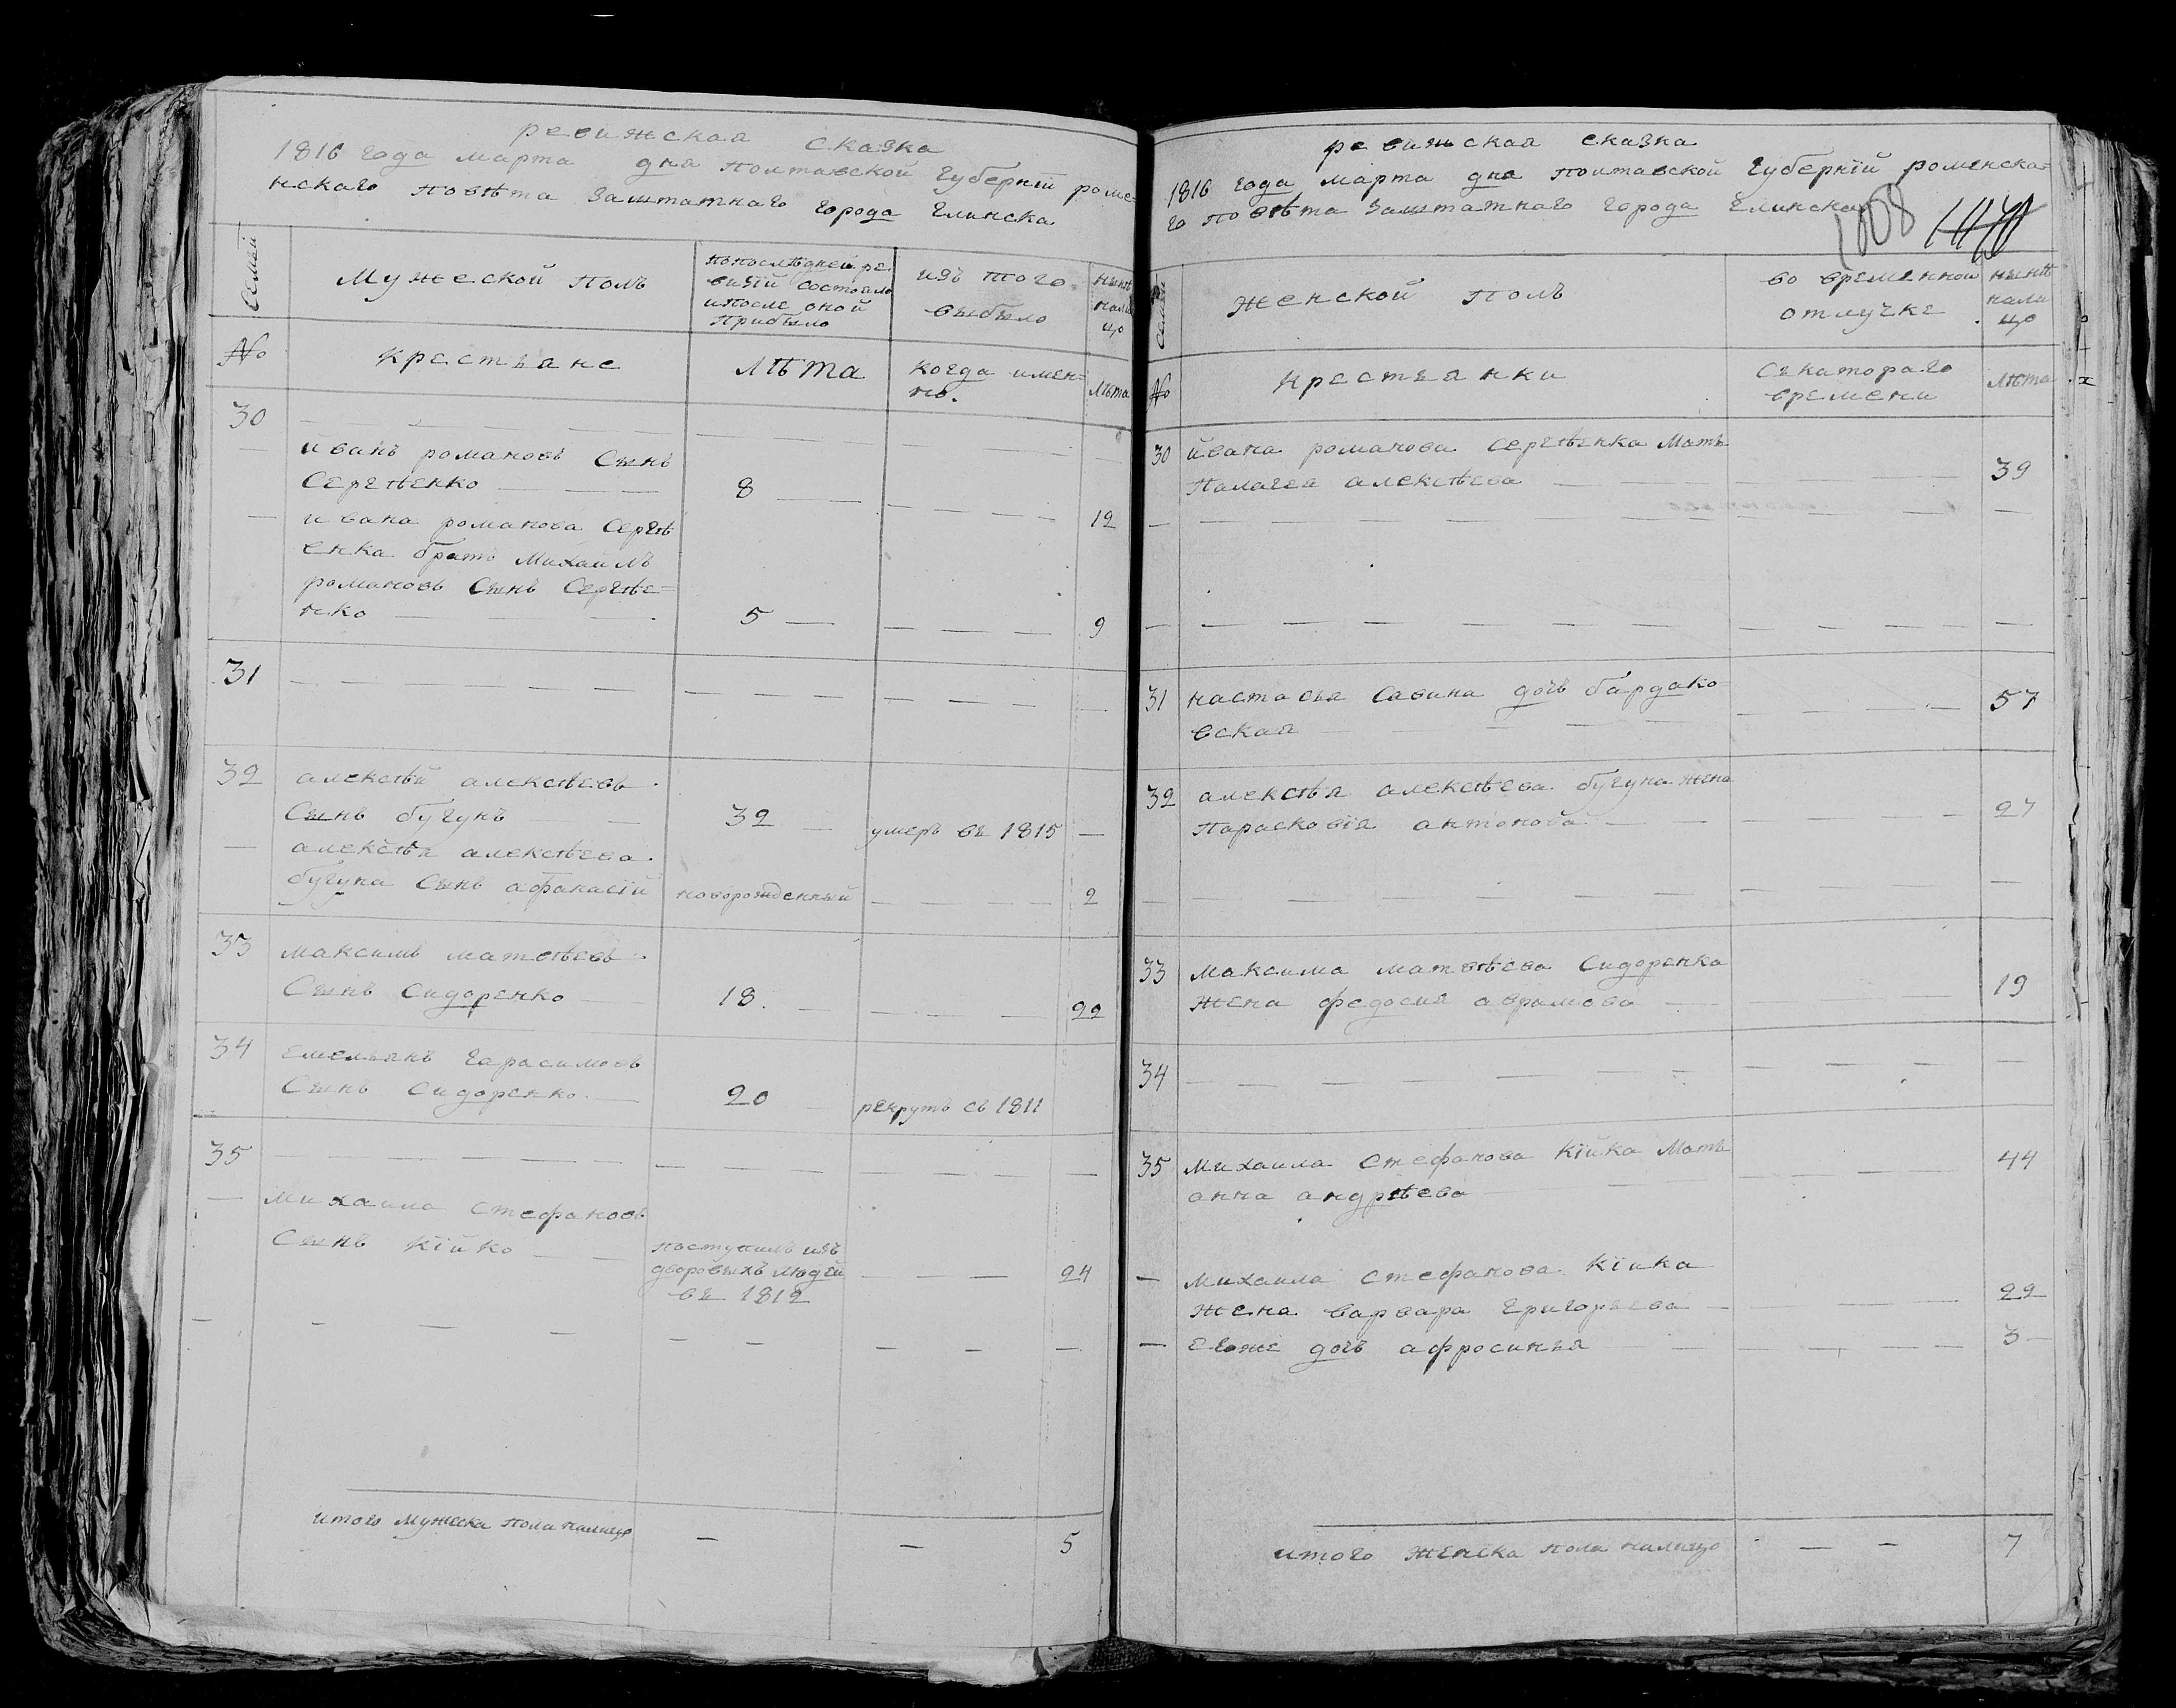 ревижская сказка
1816 года марта дня полтавской губернїй роме-
нскаго повѣта заштатнаго города глинска
Семьи
Мужеской полъ
попослѣдней ре-
визїй состояло
ипосле оной
прибыло
изъ того
выбыло
нынѣ
нали
цо
№
крестьяне
лѣта
когда имен=
но.
лѣта
30
иванъ романовъ Сынъ
Сергѣенко
8
12
ивана романова Сергѣ
енка братъ Михаилъ
романовъ Сынъ Сергѣе=
нко
5
9
31
32
алексѣй алексѣевъ
Сынъ бугунъ
32
умеръ въ 1815
алексѣя алексѣева
бугуна Сынъ афанасїй
новорожденный
2
33
максимъ матвѣевъ
Сынъ Сидоренко
18
22
34
емельянъ гарасимовъ
Сынъ Сидоренко
20
рекрутъ съ 1811
35
михаила стефановъ
Сынъ Кїйко
поступилъ изъ
дворовыхъ людей
въ 1812
24
итого мужеска пола налицо
5
ревижская сказка
1816 года марта дня полтавской губернїй роменска=
го повѣта заштатнаго города глинска
1008
Семьи
женской полъ
во временной
отлучке
нынѣ
нали
цо
№
крестьянки
съ катораго
времени
лѣта
30
ивана романова сергѣенка Мать
Палагея алексѣева
39
31
настасья савина дочь бардако
вская
57
32
алексѣя алексѣева бугуна жена
Парасковїя антонова
27
33
Максима матвѣева Сидоренка
жена федосия аврамова
19
34
35
михаила Стефанова Кїйка Мать
анна андрѣева
44
михаила стефанова Кїйка
жена варвара григорьева
22
егоже дочь афросинья
3
итого женска пола налицо
7